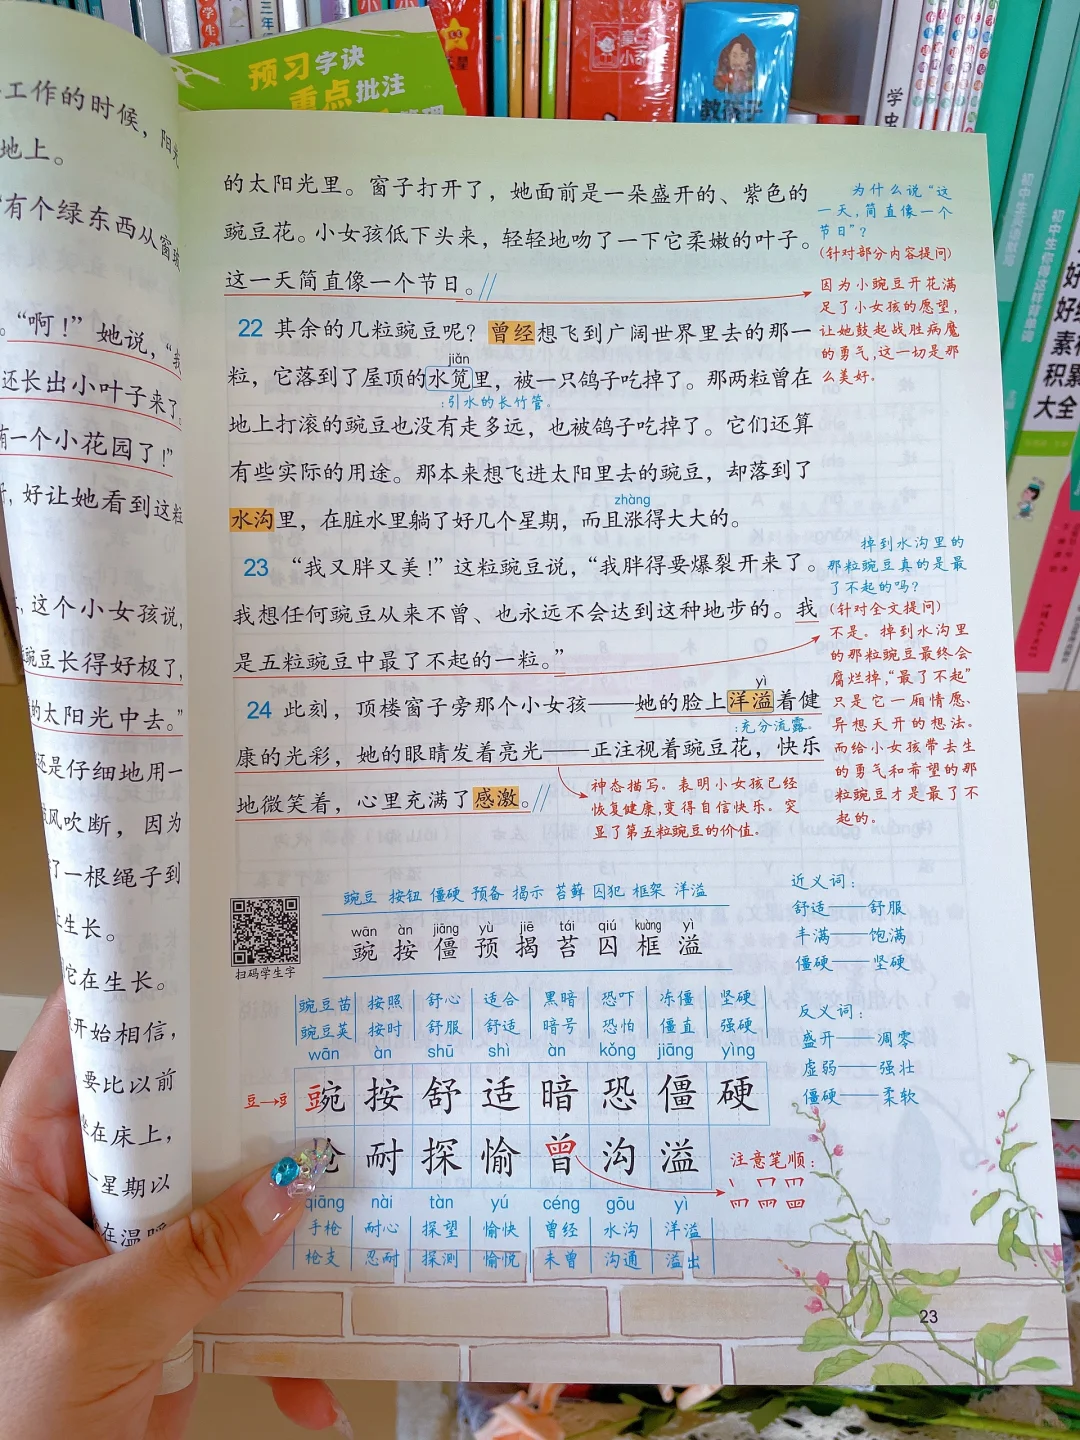 预习字诀
重点批注
三年级
教孩子
学史
初中生英语默写
初中生你得这样背单词
素材
积累
大全
工作的时候，阳光
地上。
“有个绿东西从窗玻
。“啊！”她说，“我
还长出小叶子来了。
有一个小花园了！”
好让她看到这粒
这个小女孩说，
豌豆长得好极了，
的太阳光中去。”
还是仔细地用一
风吹断，因为
了一根绳子到
上生长。
它在生长。
开始相信，
要比以前
坐在床上，
一星期以
在温暖
的太阳光里。窗子打开了，她面前是一朵盛开的、紫色的
豌豆花。小女孩低下头来，轻轻地吻了一下它柔嫩的叶子。
这一天简直像一个节日。//
22 其余的几粒豌豆呢？曾经想飞到广阔世界里去的那一
jiǎn
粒，它落到了屋顶的水笕里，被一只鸽子吃掉了。那两粒曾在
:引水的长竹管。
地上打滚的豌豆也没有走多远，也被鸽子吃掉了。它们还算
有些实际的用途。那本来想飞进太阳里去的豌豆，却落到了
zhàng
水沟里，在脏水里躺了好几个星期，而且涨得大大的。
23 “我又胖又美！”这粒豌豆说，“我胖得要爆裂开来了。
我想任何豌豆从来不曾、也永远不会达到这种地步的。我
是五粒豌豆中最了不起的一粒。”
yì
24 此刻，顶楼窗子旁那个小女孩——她的脸上洋溢着健
:充分流露。
康的光彩，她的眼睛发着亮光——正注视着豌豆花，快乐
地微笑着，心里充满了感激。//
神态描写。表明小女孩已经
恢复健康，变得自信快乐。突
显了第五粒豌豆的价值。
为什么说“这
一天，简直像一个
节日”？
(针对部分内容提问)
因为小豌豆开花满
足了小女孩的愿望，
让她鼓起战胜病魔
的勇气，这一切是那
么美好。
掉到水沟里的
那粒豌豆真的是最
了不起的吗？
(针对全文提问)
不是。掉到水沟里
的那粒豌豆最终会
腐烂掉，“最了不起”
只是它一厢情愿、
异想天开的想法。
而给小女孩带去生
的勇气和希望的那
粒豌豆才是最了不
起的。
扫码学生字
豌豆 按钮 僵硬 预备 揭示 苔藓 囚犯 框架 洋溢
wān àn jiāng yù jiē tái qiú kuàng yì
豌 按 僵 预 揭 苔 囚 框 溢
豌豆苗 按照 舒心 适合 黑暗 恐吓 冻僵 坚硬
豌豆荚 按时 舒服 舒适 暗号 恐怕 僵直 强硬
wān àn shū shì àn kǒng jiāng yìng
豆→豆 豌 按 舒 适 暗 恐 僵 硬
枪 耐 探 愉 曾 沟 溢
qiāng nài tàn yú céng gōu yì
手枪 耐心 探望 愉快 曾经 水沟 洋溢
枪支 忍耐 探测 愉悦 未曾 沟通 溢出
注意笔顺：
近义词：
舒适——舒服
丰满——饱满
僵硬——坚硬
反义词：
盛开——凋零
虚弱——强壮
僵硬——柔软
23